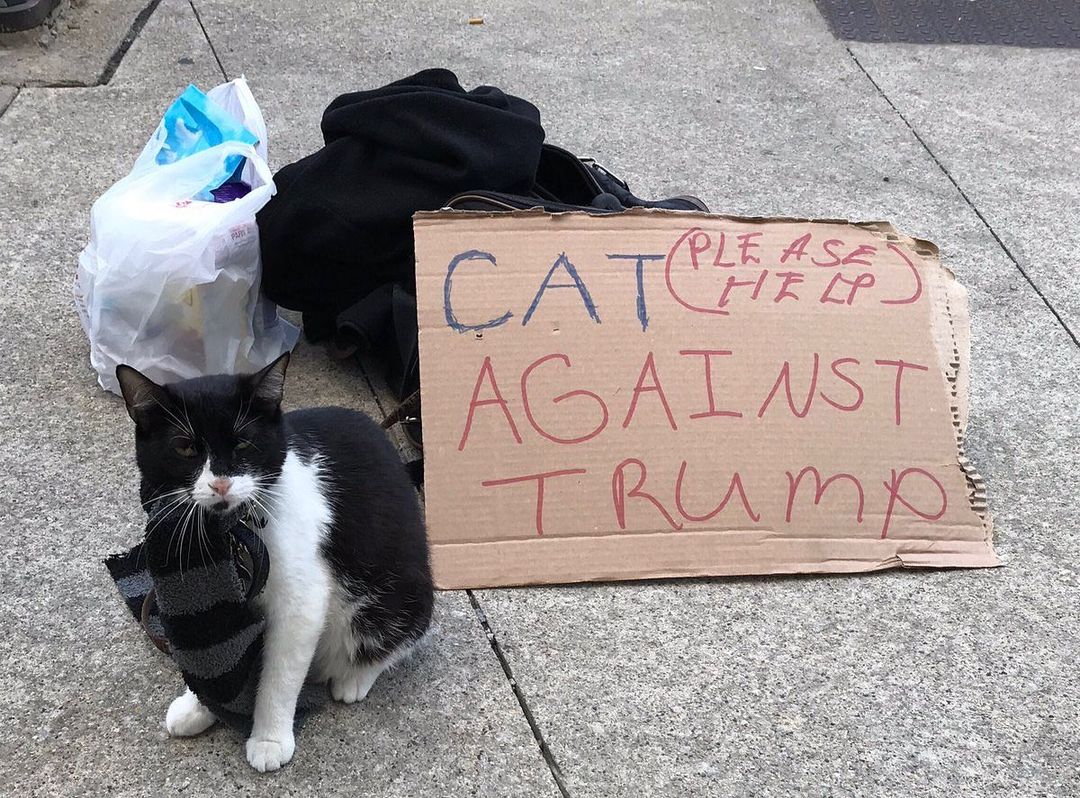 CAT (PLEASE
HELP)
AGAINST
TRUMP